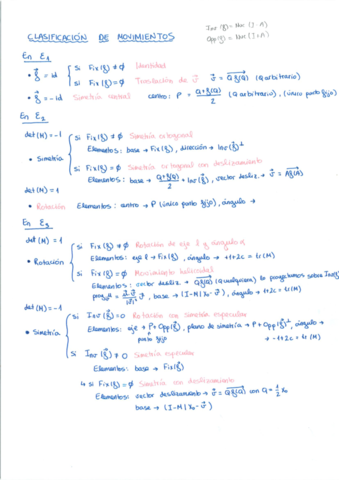 CLASIFICACIÓN DE MOVIMIENTOS
Inv (f) = Nuc (I-A)
Opp (f) = Nuc (I+A)
En E1
• f = id { Si Fix(f) ≠ ∅ Identidad
Si Fix(f) = ∅ Translación de v v = Qf(Q) (Q arbitrario)
• f = -id Simetría central centro: P = Q+f(Q)/2 (Q arbitrario), (único punto fijo)
En E2
det(M) = -1
• Simetría { Si Fix(f) ≠ ∅ Simetría ortogonal
Elementos: base → Fix(f), dirección → Inv(f)⊥
Si Fix(f) = ∅ Simetría ortogonal con deslizamiento
Elementos: base → Q+f(Q)/2 + Inv(f), vector desliz. → v = Af(A)
det(M) = 1
• Rotación Elementos: centro → P (único punto fijo), ángulo →
En E3
det(M) = 1
• Rotación { Si Fix(f) ≠ ∅ Rotación de eje l y ángulo α
Elementos: eje l → Fix(f), ángulo → 1+2c = tr(M)
Si Fix(f) = ∅ Movimiento helicoidal
Elementos: vector desliz → Qf(Q) (Q cualquiera) lo proyectamos sobre Inv(f)
base → (I-M | X0 - v), ángulo → 1+2c = tr(M)
det(M) = -1
• Simetría { Si Inv(f) = 0 Rotación con simetría especular
Elementos: eje → P + Opp(f), plano de simetría → P + Opp(f)⊥, ángulo →
punto fijo → -1+2c = tr(M)
Si Inv(f) ≠ 0 Simetría especular
Elementos: base → Fix(f)
↳ Si Fix(f) = ∅ Simetría con deslizamiento
Elementos: vector deslizamiento → v = Qf(Q) con Q = 1/2 X0
base → (I-M | X0 - v)